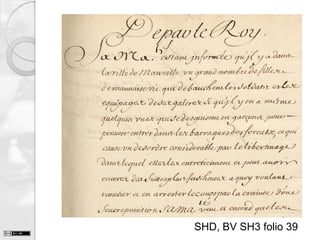 De par le Roy.
Sa Ma.té estant informée qu'il y a dans
la ville de Marseille un grand nombre de filles
de mauvaise vie qui débauchent les soldats et les
equipages de ses galeres & qu'il y en a mesme
quelques unes qui se desguisent en garçons pour
pouvoir entrer dans les barraques des forçats, ce qui
cause un desordre considerable par le libertinage
dans lequel elles les entretiennent et peut avoir
encores des suites plus fascheuses a quoy voulant
remedier et en arrester le cours par la crainte d'une
severe punition, Sa Ma.té veut et entend que les
SHD, BV SH3 folio 39